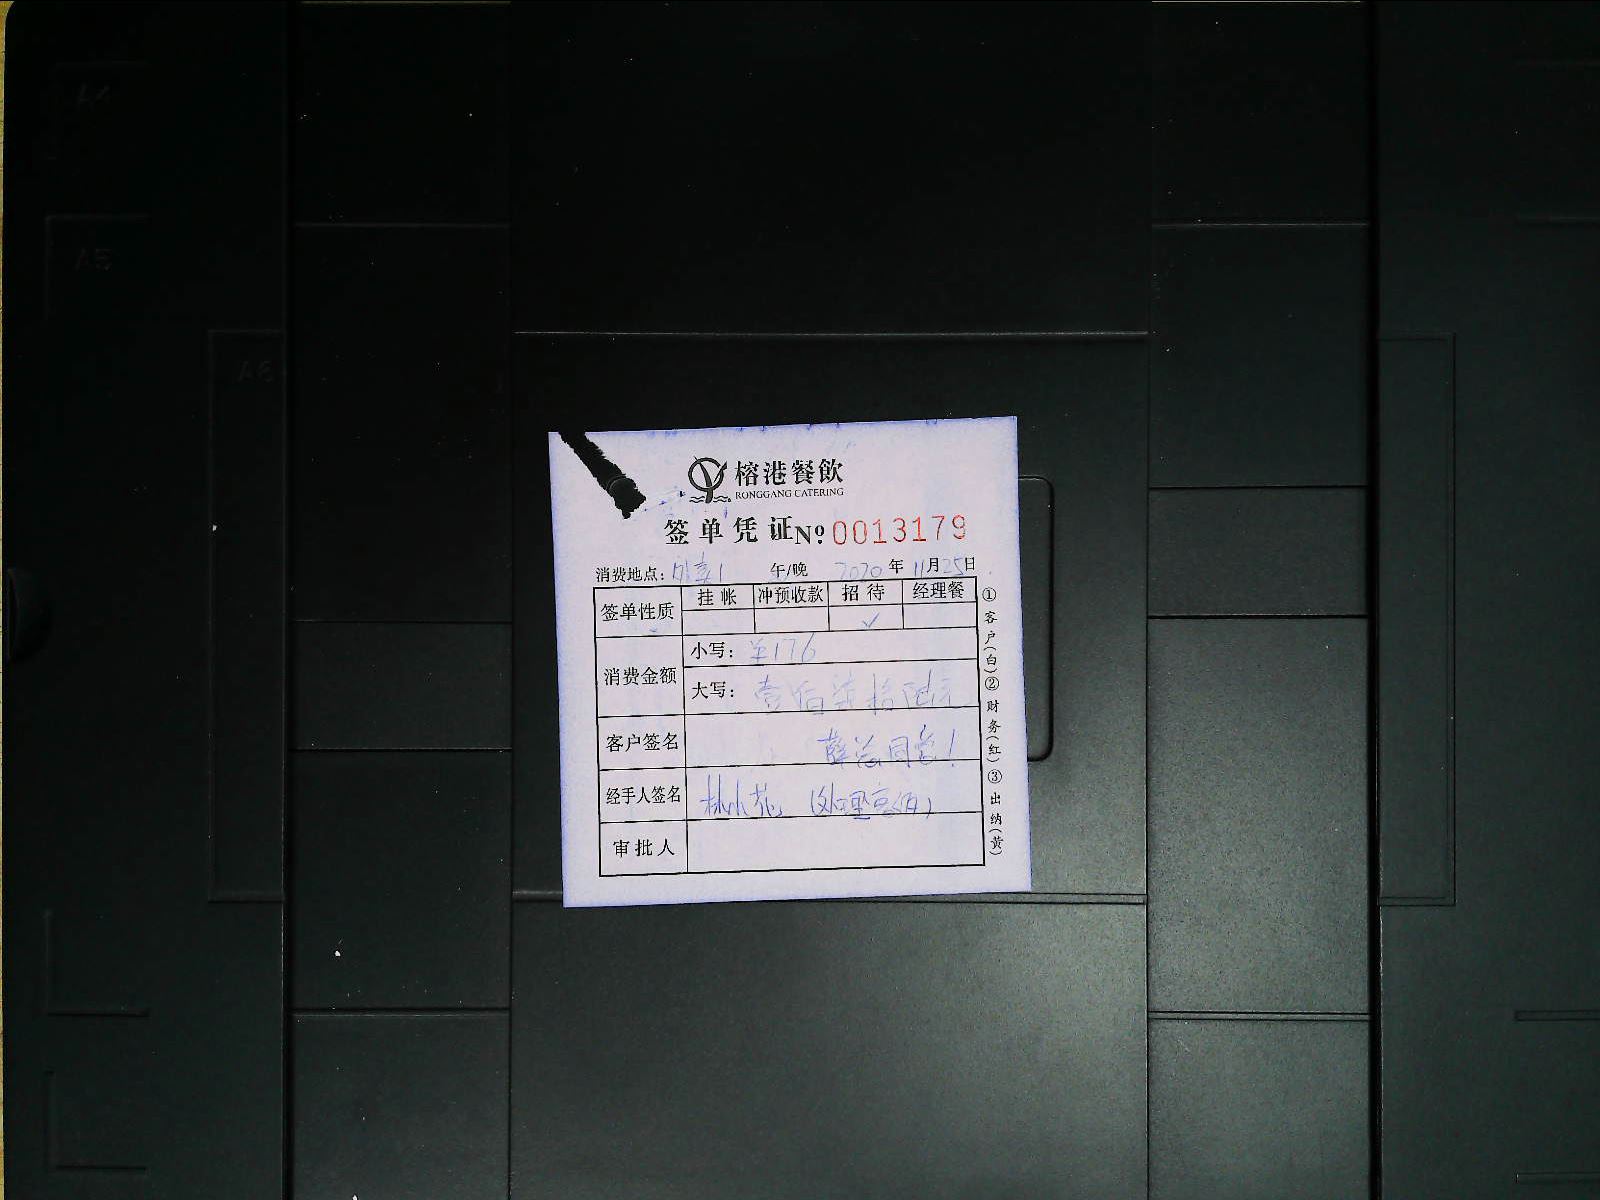 A4
A5
A6
榕港餐飲
RONGGANG CATERING
签单凭证№ 0013179
消费地点： 1 午/晚 2020年11月25日
签单性质 挂帐 冲预收款 招待 经理餐
✓
消费金额 小写：¥176
大写：壹佰柒拾陆元
客户签名 薛总同意！
经手人签名 林小花
审批人
①客户(白)②财务(红)③出纳(黄)